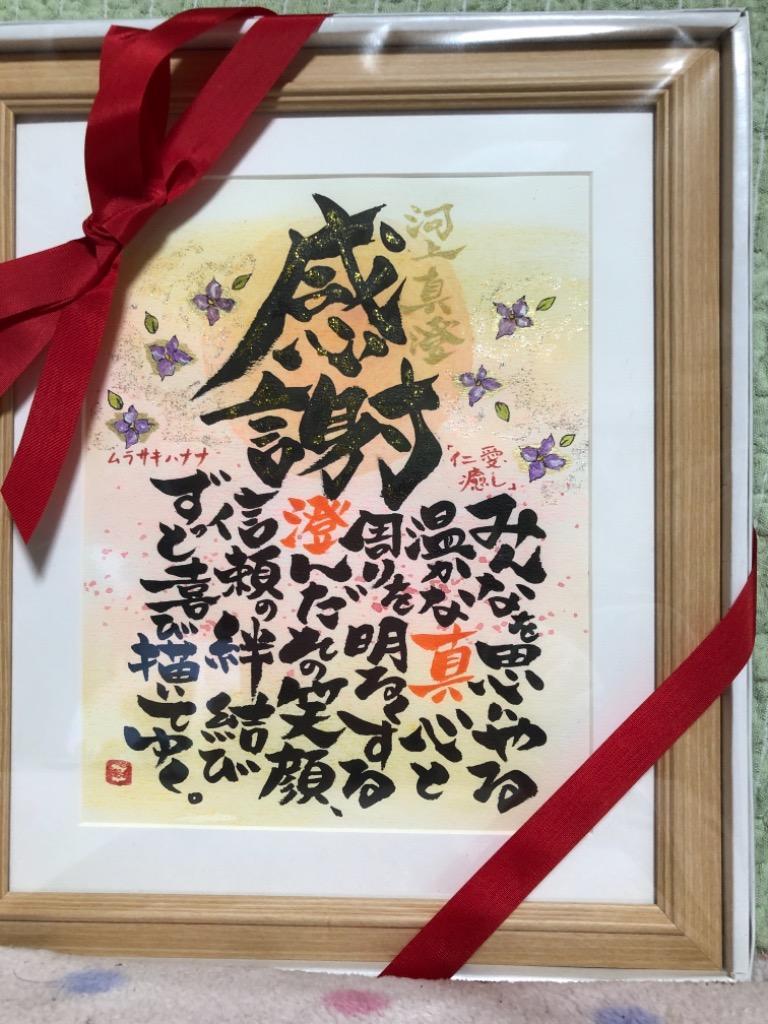 感謝
河上真澄
「仁愛
癒し」
ムラサキハナナ
みんなを思いやる
温かな真心と
周りを明るくする
澄んだその笑顔、
信頼の絆結び
ずっと喜び描いてゆく。